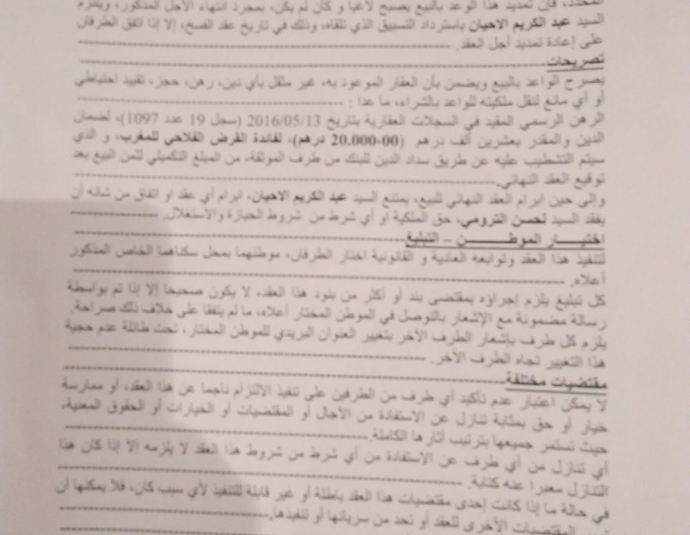 المحدد، فإن تمديد هذا الوعد بالبيع يصبح لاغيا و كأن لم يكن، بمجرد انتهاء الأجل المذكور، ويلتزم
السيد عبد الكريم الاحيان باسترداد التسبيق الذي تلقاه، وذلك في تاريخ عقد الفسخ، إلا إذا اتفق الطرفان
على إعادة تمديد أجل العقد.
تصريحات
يصرح الواعد بالبيع ويضمن بأن العقار الموعود به، غير مثقل بأي دين، رهن، حجز، تقييد احتياطي
أو أي مانع لنقل ملكيته للواعد بالشراء، ما عدا :
الرهن الرسمي المقيد في السجلات العقارية بتاريخ 2016/05/13 (سجل 19 عدد 1097)، لضمان
الدين والمقدر بعشرين ألف درهم (20.000-00 درهم)، لفائدة القرض الفلاحي للمغرب، و الذي
سيتم التشطيب عليه عن طريق سداد الدين للبنك من طرف الموثقة، من المبلغ التكميلي لثمن البيع بعد
توقيع العقد النهائي.
وإلى حين ابرام العقد النهائي للبيع، يمتنع السيد عبد الكريم الاحيان، ابرام أي عقد او اتفاق من شانه أن
يفقد السيد لحسن الترومي، حق الملكية او أي شرط من شروط الحيازة والاستغلال.
اختيـــار الموطـــن – التبليغ
لتنفيذ هذا العقد وتوابعه العادية و القانونية اختار الطرفان، موطنهما بمحل سكناهما الخاص المذكور
أعلاه.
كل تبليغ يلزم إجراؤه بمقتضى بند أو أكثر من بنود هذا العقد، لا يكون صحيحا إلا إذا تم بواسطة
رسالة مضمونة مع الإشعار بالتوصل في الموطن المختار أعلاه، ما لم يتفقا على خلاف ذلك صراحة.
يلزم كل طرف بإشعار الطرف الآخر بتغيير العنوان البريدي للموطن المختار، تحت طائلة عدم حجية
هذا التغيير تجاه الطرف الآخر.
مقتضيات مختلفة
لا يمكن اعتبار عدم تأكيد أي طرف من الطرفين على تنفيذ الالتزام ناجما عن هذا العقد، أو ممارسة
خيار أو حق بمثابة تنازل عن الاستفادة من الآجال أو المقتضيات أو الخيارات أو الحقوق المعنية،
حيث تستمر جميعها بترتيب آثارها الكاملة.
أي تنازل من أي طرف عن الاستفادة من أي شرط من شروط هذا العقد لا يلزمه إلا إذا كان هذا
التنازل معبرا عنه كتابة.
في حالة ما إذا كانت إحدى مقتضيات هذا العقد باطلة أو غير قابلة للتنفيذ لأي سبب كان، فلا يمكنها أن
المقتضيات الأخرى للعقد أو تحد من سريانها أو تنفيذها.